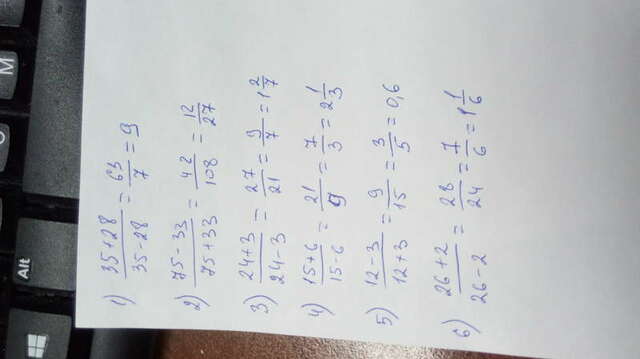 Alt
M
1) 35+28/35-28 = 63/7 = 9
2) 75-33/75+33 = 42/108 = 12/27
3) 24+3/24-3 = 27/21 = 9/7 = 1 2/7
4) 15+6/15-6 = 21/9 = 7/3 = 2 1/3
5) 12-3/12+3 = 9/15 = 3/5 = 0,6
6) 26+2/26-2 = 28/24 = 7/6 = 1 1/6